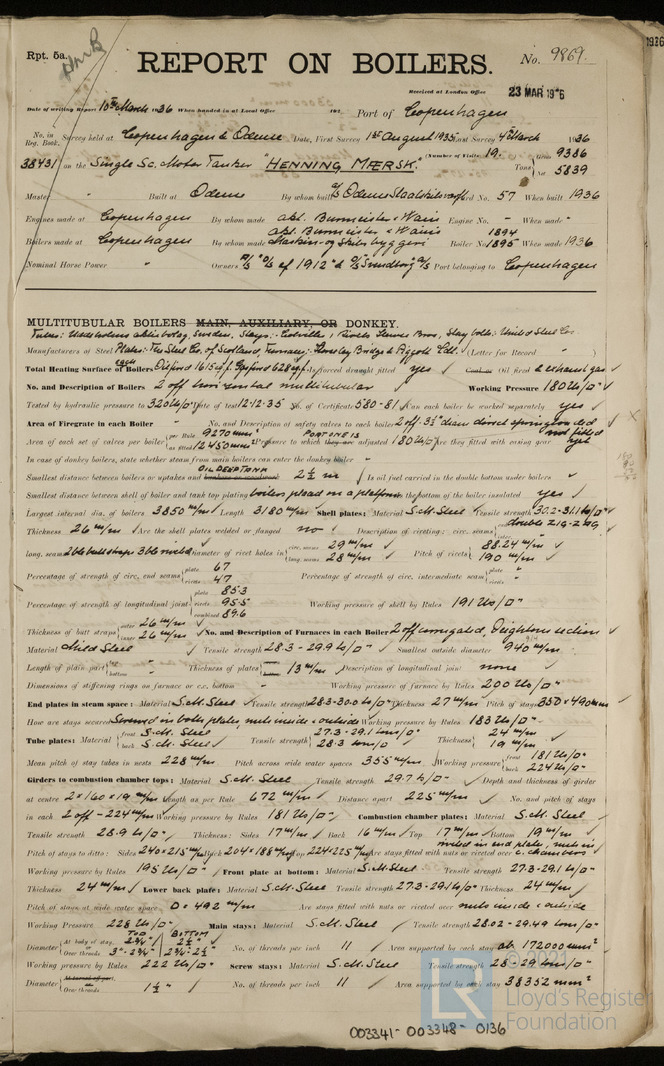 Rpt. 5a.
REPORT ON BOILERS.
No. 9869.
1936
Received at London Office 23 MAR 1936
Date of writing Report 10th March 1936 When handed in at Local Office 192 Port of Copenhagen
No. in Reg. Book. Survey held at Copenhagen & Odense Date, First Survey 1st August 1935 Last Survey 4th March 1936
38431 on the Single Sc. Motor Tanker "HENNING MÆRSK." (Number of Visits 19.) Tons Gross 9386
Net 5839
Master " Built at Odense By whom built Yard No. 57 When built 1936
Engines made at Copenhagen By whom made Akt. Burmeister & Wain Engine No. - When made -
Boilers made at Copenhagen By whom made Akt. Burmeister & Wain's Maskin- og Skibsbyggeri Boiler No. 1894 1895 When made 1936
Nominal Horse Power " Owners of 1912 & Port belonging to Copenhagen
MULTITUBULAR BOILERS MAIN, AUXILIARY, OR DONKEY.
Manufacturers of Steel Plates: The Steel Co. of Scotland, (Letter for Record " )
Total Heating Surface of Boilers each Is forced draught fitted yes Coal or Oil fired & exhaust gas
No. and Description of Boilers 2 off horizontal multitubular Working Pressure 180 lb/□"
Tested by hydraulic pressure to 320 lb/□" Date of test 12.12.35 No. of Certificate 580-81 Can each boiler be worked separately yes
Area of Firegrate in each Boiler " No. and Description of safety valves to each boiler 2 off. 3½" diam
Area of each set of valves per boiler per Rule 9270 mm² as fitted 12450 mm² Pressure to which they are adjusted 180 lb/□" Are they fitted with easing gear yes
In case of donkey boilers, state whether steam from main boilers can enter the donkey boiler "
Smallest distance between boilers or uptakes and bunkers or woodwork OIL DEEPTANK 2½ m Is oil fuel carried in the double bottom under boilers
Smallest distance between shell of boiler and tank top plating boilers placed on a platform Is the bottom of the boiler insulated yes
Largest internal dia. of boilers 3850 m/m Length 3180 m/m Shell plates: Material S.M. Steel Tensile strength 30.2-31.1 to/□"
Thickness 26 m/m Are the shell plates welded or flanged no Description of riveting: circ. seams double zig-zag
long. seams Diameter of rivet holes in circ. seams 29 m/m long. seams 28 m/m Pitch of rivets 88.24 m/m 190 m/m
Percentage of strength of circ. end seams plate 67 rivets 47 Percentage of strength of circ. intermediate seam plate rivets
Percentage of strength of longitudinal joint plate 85.3 rivets 95.5 combined 89.6 Working pressure of shell by Rules 191 lb/□"
Thickness of butt straps outer 26 m/m inner 26 m/m No. and Description of Furnaces in each Boiler 2 off corrugated, Deighton section
Material Mild Steel Tensile strength 28.3 - 29.9 to/□" Smallest outside diameter 940 m/m
Length of plain part top bottom Thickness of plates 13 m/m Description of longitudinal joint none
Dimensions of stiffening rings on furnace or c.c. bottom " Working pressure of furnace by Rules 200 lb/□"
End plates in steam space: Material S.M. Steel Tensile strength 28.3-30.0 to/□" Thickness 27 m/m Pitch of stays 350 x 490 mm
How are stays secured Screwed in both plates, nuts inside & outside Working pressure by Rules 183 lb/□"
Tube plates: Material front S.M. Steel back S.M. Steel Tensile strength 27.3 - 29.1 ton/□" 28.3 ton/□" Thickness 24 m/m 19 m/m
Mean pitch of stay tubes in nests 228 m/m Pitch across wide water spaces 355 m/m Working pressure front 181 lb/□" back 224 lb/□"
Girders to combustion chamber tops: Material S.M. Steel Tensile strength 29.7 to/□" Depth and thickness of girder
at centre 2x160x19 m/m Length as per Rule 672 m/m Distance apart 225 m/m No. and pitch of stays
in each 2 off - 224 m/m Working pressure by Rules 181 lb/□" Combustion chamber plates: Material S.M. Steel
Tensile strength 28.9 to/□" Thickness: Sides 17 m/m Back 16 m/m Top 17 m/m Bottom 19 m/m
Pitch of stays to ditto: Sides 240 x 215 m/m Back 204 x 188 m/m Top 224 x 225 m/m Are stays fitted with nuts or riveted over
Working pressure by Rules 195 lb/□" Front plate at bottom: Material S.M. Steel Tensile strength 27.3 - 29.1 to/□"
Thickness 24 m/m Lower back plate: Material S.M. Steel Tensile strength 27.3 - 29.1 to/□" Thickness 24 m/m
Pitch of stays at wide water space D = 492 m/m Are stays fitted with nuts or riveted over nuts inside & outside
Working Pressure 228 lb/□" Main stays: Material S.M. Steel Tensile strength 28.02 - 29.49 ton/□"
Diameter At body of stay, Over threads TOP 2¾" 3" - 2¾" BOTTOM 2½" 2¾ - 2½ No. of threads per inch 11 Area supported by each stay ab. 172000 mm²
Working pressure by Rules 222 lb/□" Screw stays: Material S.M. Steel Tensile strength 28-29 ton/□"
Diameter At turned off part, Over threads 1½" No. of threads per inch 11 Area supported by each stay 38352 mm²
© 2021
LR
Lloyd's Register
Foundation
003341- 003348- 0136